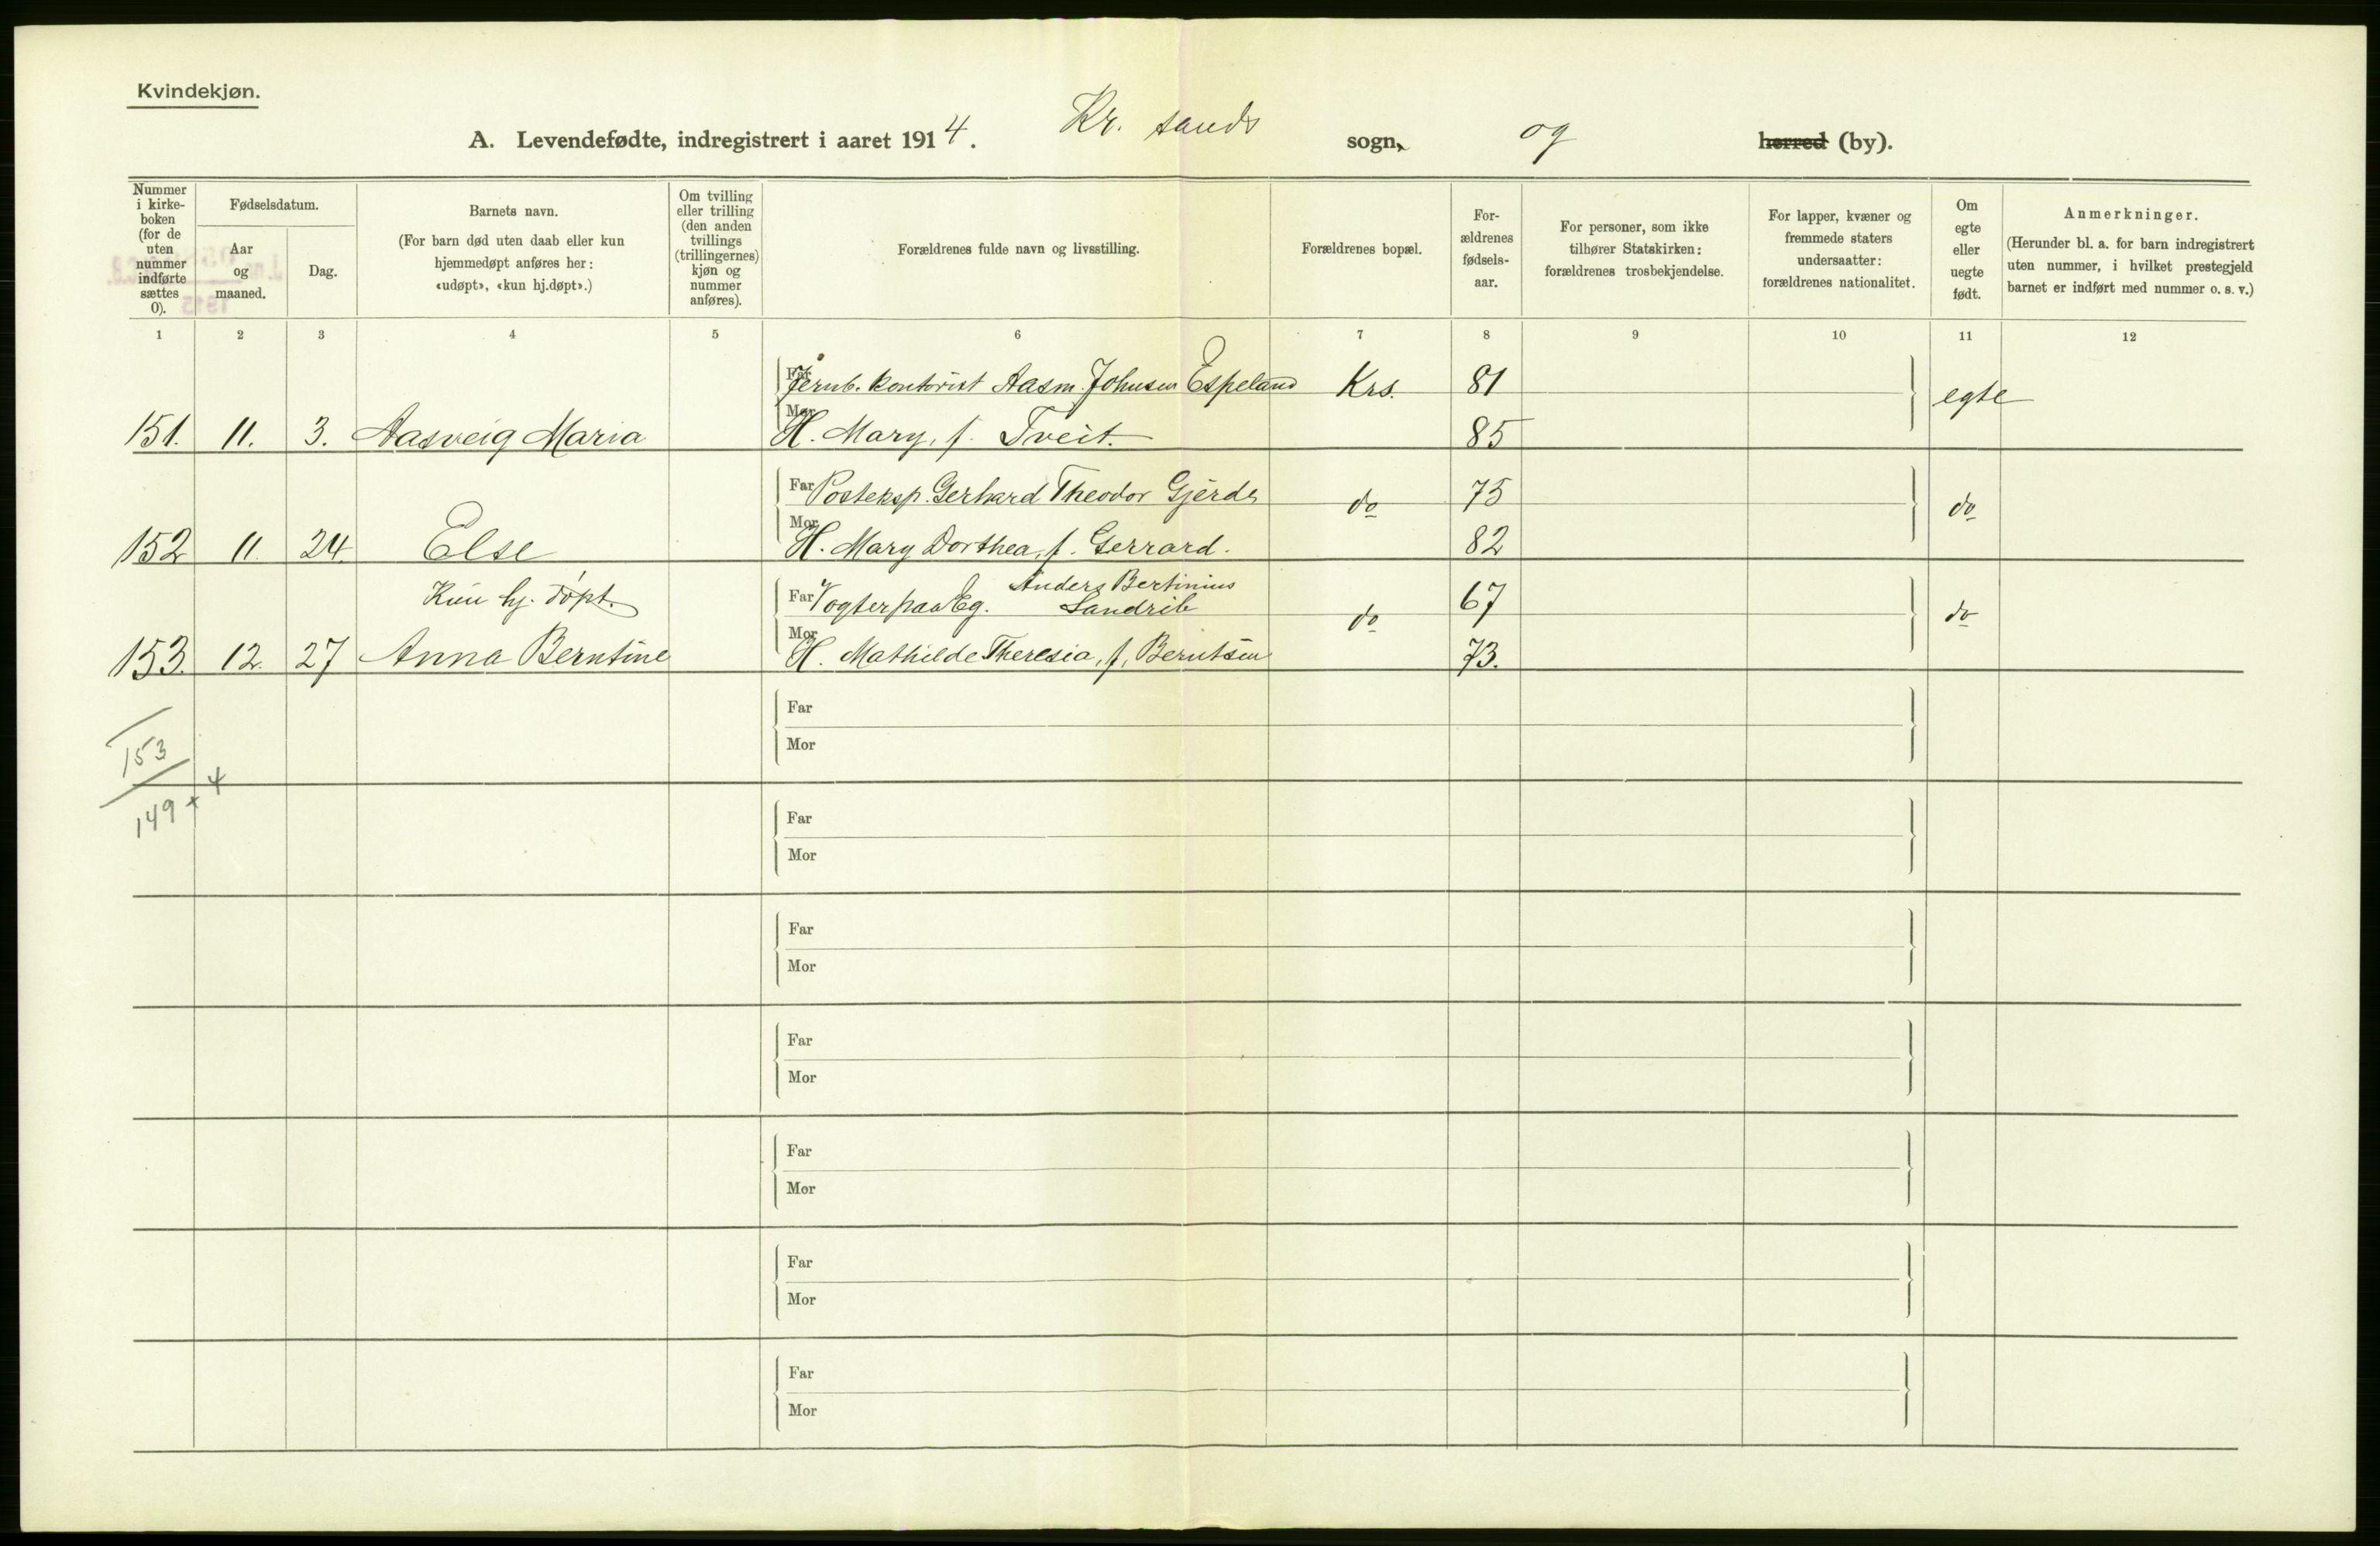 Kvindekjøn.
A. Levendefødte, indregistrert i aaret 1914. Kr. sands sogn, og herred (by).
Nummer i kirke-boken (for de uten nummer indførte sættes 0).
Fødselsdatum.
Aar og maaned.
Dag.
Barnets navn.
(For barn død uten daab eller kun hjemmedøpt anføres her: «udøpt», «kun hj.døpt».)
Om tvilling eller trilling (den anden tvillings (trillingernes) kjøn og nummer anføres).
Forældrenes fulde navn og livsstilling.
Forældrenes bopæl.
For-ældrenes fødsels-aar.
For personer, som ikke tilhører Statskirken: forældrenes trosbekjendelse.
For lapper, kvæner og fremmede staters undersaatter: forældrenes nationalitet.
Om egte eller uegte født.
Anmerkninger.
(Herunder bl. a. for barn indregistrert uten nummer, i hvilket prestegjeld barnet er indført med nummer o. s. v.)
1 2 3 4 5 6 7 8 9 10 11 12
Far Jernb. kontorist Aasm. Johnsen Espeland Krs. 81 egte
151. 11. 3. Aasveig Maria Mor H. Mary, f. Tveit. 85
Far Posteksp. Gerhard Theodor Gjerde do 75 do
152 11. 24. Else Mor H. Mary Dorthea, f. Gerrard. 82
Kun hj. døpt. Far Vogter paa Eg. Anders Bertinius Sandrib do 67 do
153. 12. 27 Anna Berntine Mor H. Mathilde Theresia, f. Berntsen 73.
153
149 + 4
Far
Mor
Far
Mor
Far
Mor
Far
Mor
Far
Mor
Far
Mor
Far
Mor